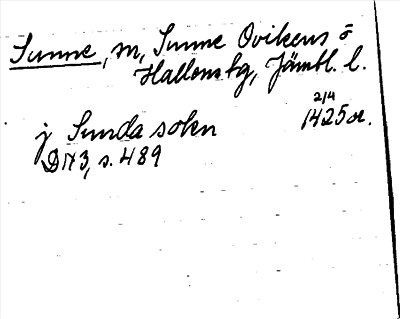 Sunne, sn, Sunne Ovikens o
Hallens tg, Jämtl. l.
j Sunda sokn 2/4 1425 or.
DN 3, s. 489